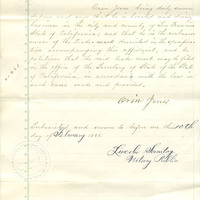 Orin Jones being duly sworn
deposes and says that he is located and doing
business in the City and County of San Francisco
State of California, and that he is the exclusive
owner of the trade mark described in the specifica-
tion accompanying this affidavit, and
petitions that the said trade mark may be filed
in the office of the Secretary of State of the State
of California, in accordance with the law in
such cases made and provided.
Orin Jones
Subscribed and sworn to before me this 10th
day of February 188
Lincoln Sonntag
Notary Public